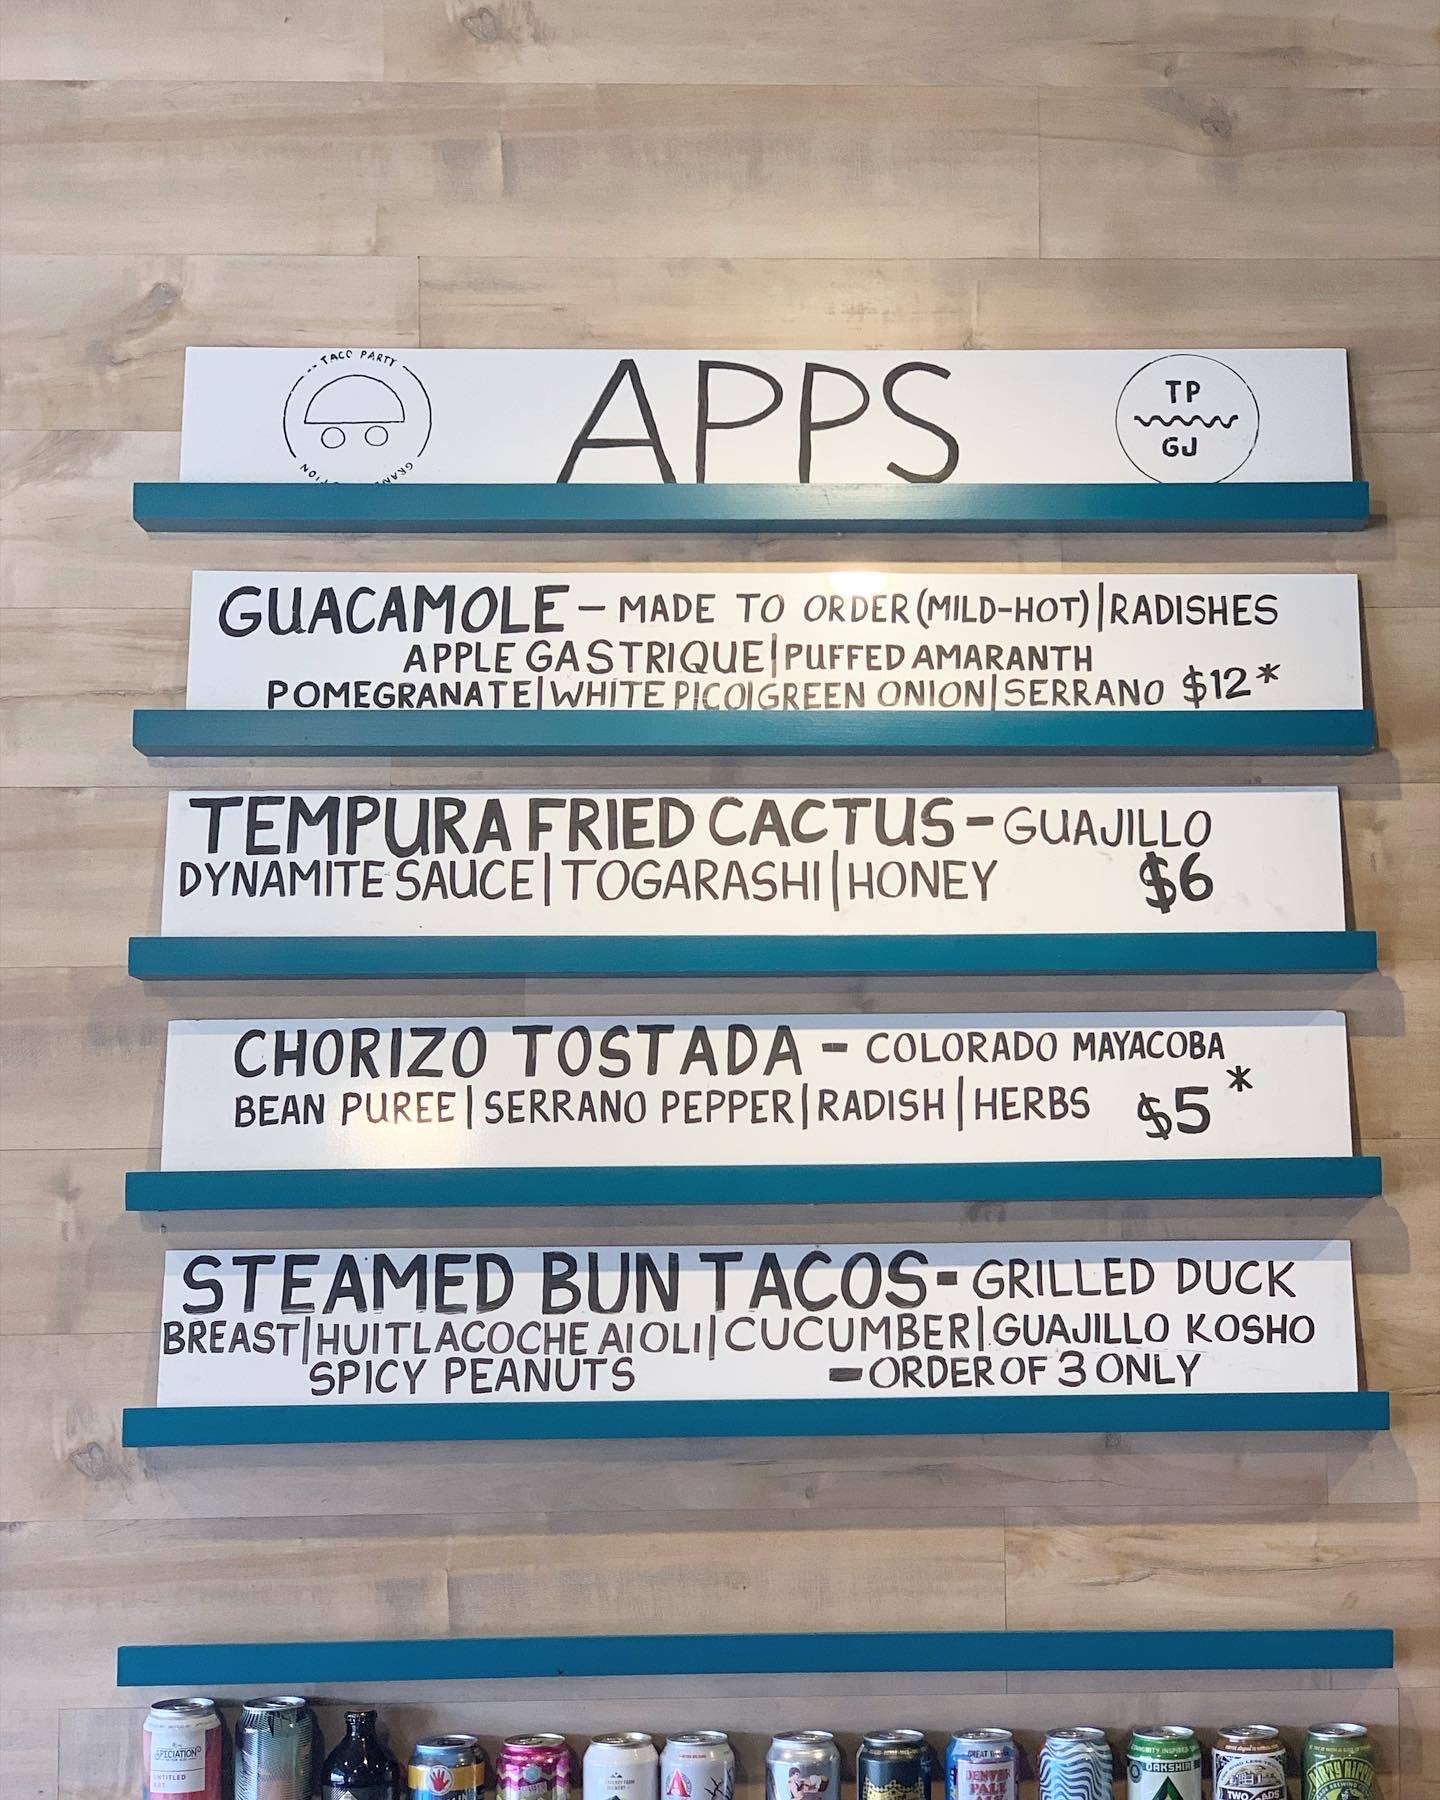 TACO PARTY
APPS
TP
GJ
GUACAMOLE - MADE TO ORDER (MILD-HOT) | RADISHES
APPLE GASTRIQUE | PUFFED AMARANTH
POMEGRANATE | WHITE PICO | GREEN ONION | SERRANO $12*
TEMPURA FRIED CACTUS - GUAJILLO
DYNAMITE SAUCE | TOGARASHI | HONEY $6
CHORIZO TOSTADA - COLORADO MAYACOBA
BEAN PUREE | SERRANO PEPPER | RADISH | HERBS $5*
STEAMED BUN TACOS - GRILLED DUCK
BREAST | HUITLACOCHE AIOLI | CUCUMBER | GUAJILLO KOSHO
SPICY PEANUTS - ORDER OF 3 ONLY
SPECIATION
UNTITLED
ART
A
GREAT
DENVER
PALE
OAKSHIRE
TWO